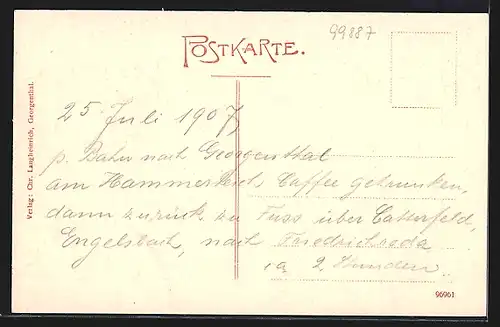 99887
POSTKARTE.
Verlag: Chr. Langheinrich, Georgenthal.
25 Juli 1907,
p. Bahn nach Georgenthal
am Hammerteich, Caffee getrunken,
dann zurück zu Fuss über Catterfeld,
Engelsbach, nach Friedrichroda
ca 2 Stunden.
96961